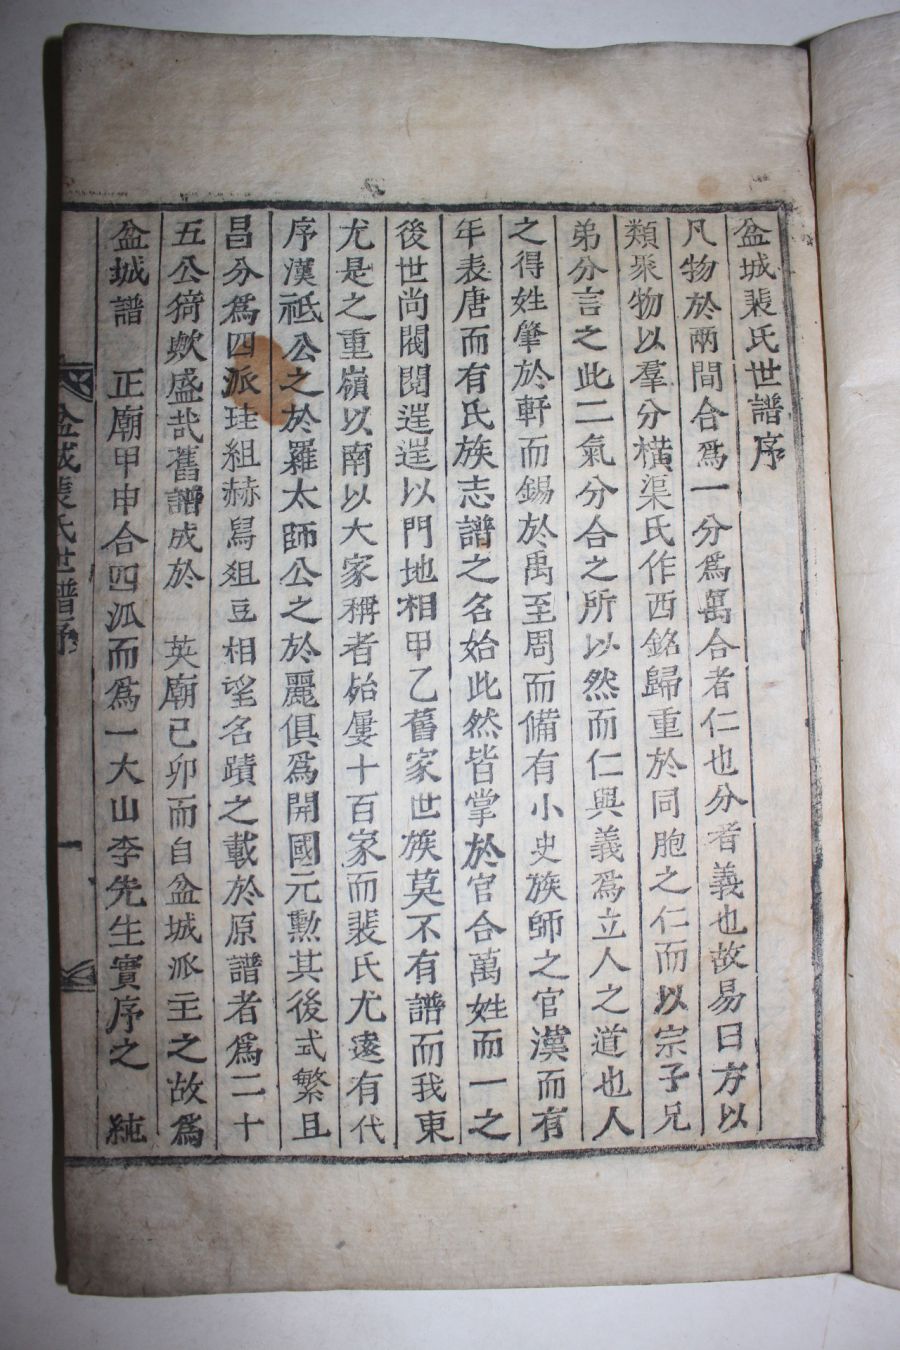 盆城裴氏世譜序
凡物於兩間合爲一分爲萬合者仁也分者義也故易曰方以
類聚物以羣分橫渠氏作西銘歸重於同胞之仁而以宗子兄
弟分言之此二氣分合之所以然而仁與義爲立人之道也人
之得姓肇於軒而錫於禹至周而備有小史族師之官漢而有
年表唐而有氏族志譜之名始此然皆掌於官合萬姓而一之
後世尚閥閱逞逞以門地相甲乙舊家世族莫不有譜而我東
尤是之重嶺以南以大家稱者殆屢十百家而裴氏尤遠有代
序漢祗公之於羅太師公之於麗俱爲開國元勳其後式繁且
昌分爲四派珪組赫舄俎豆相望名蹟之載於原譜者爲二十
五公猗歟盛哉舊譜成於 英廟己卯而自盆城派主之故爲
盆城譜 正廟甲申合四派而爲一大山李先生實序之 純
盆城裴氏世譜序 一